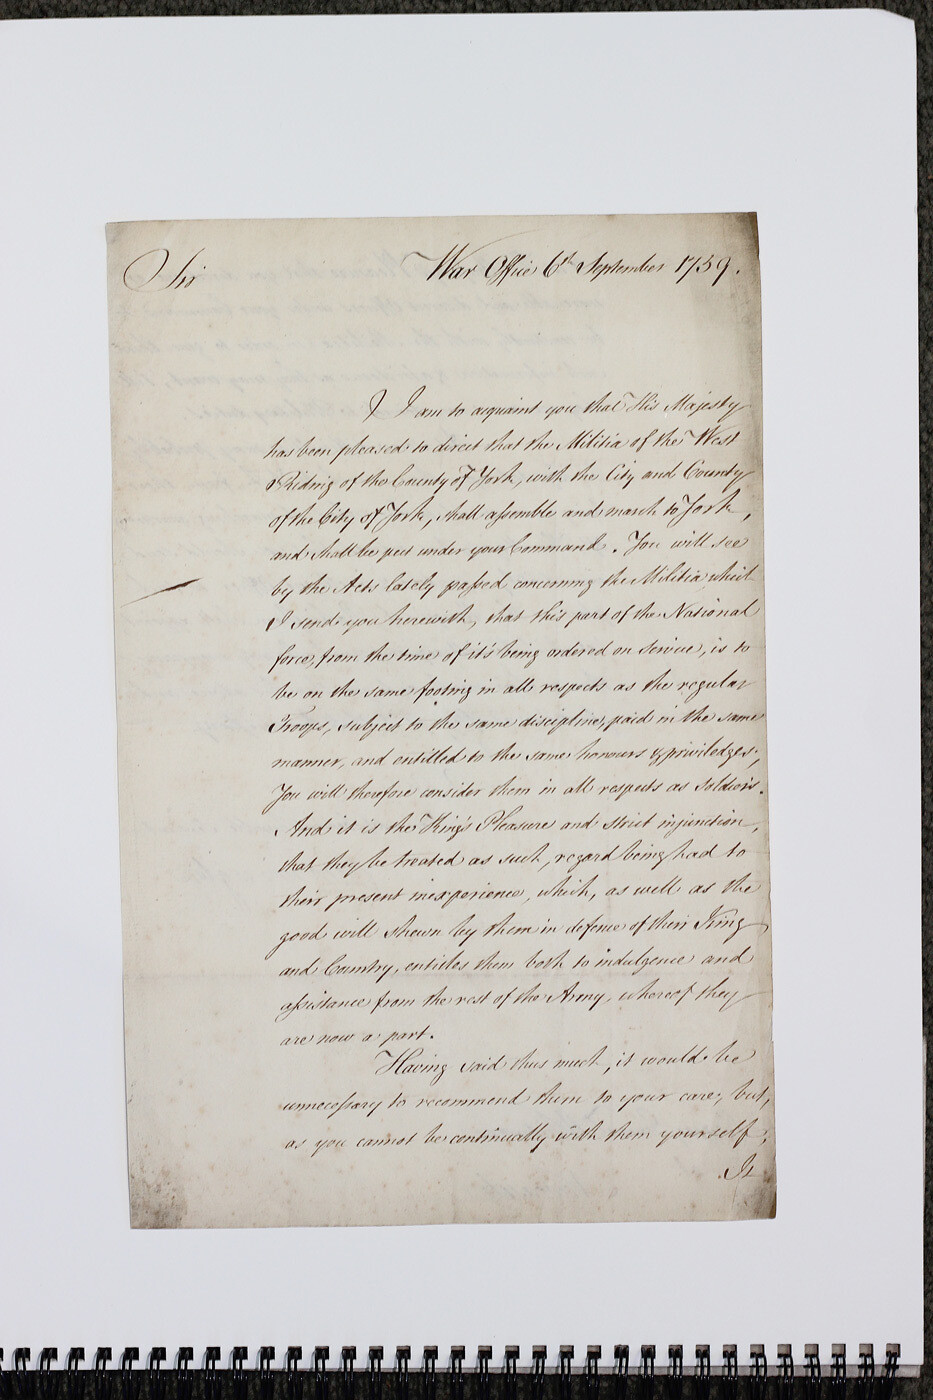 Sir War Office 6th September 1759.
I am to acquaint you that His Majesty
has been pleased to direct that the Militia of the West
Riding of the County of York, with the City and County
of the City of York, shall assemble and march to York,
and shall be put under your Command. You will see
by the Acts lately passed concerning the Militia, which
I send you herewith, that this part of the National
force, from the time of it's being ordered on service, is to
be on the same footing in all respects as the regular
Troops, subject to the same discipline, paid in the same
manner, and entitled to the same honours & priviledges;
You will therefore consider them in all respects as Soldiers.
And it is the King's Pleasure and strict injunction,
that they be treated as such, regard being had to
their present inexperience, which, as well as the
good will shewn by them in defence of their King
and Country, entitles them both to indulgence and
assistance from the rest of the Army, whereof they
are now a part.
Having said thus much, it would be
unnecessary to recommend them to your care, but,
as you cannot be continually with them yourself,
It